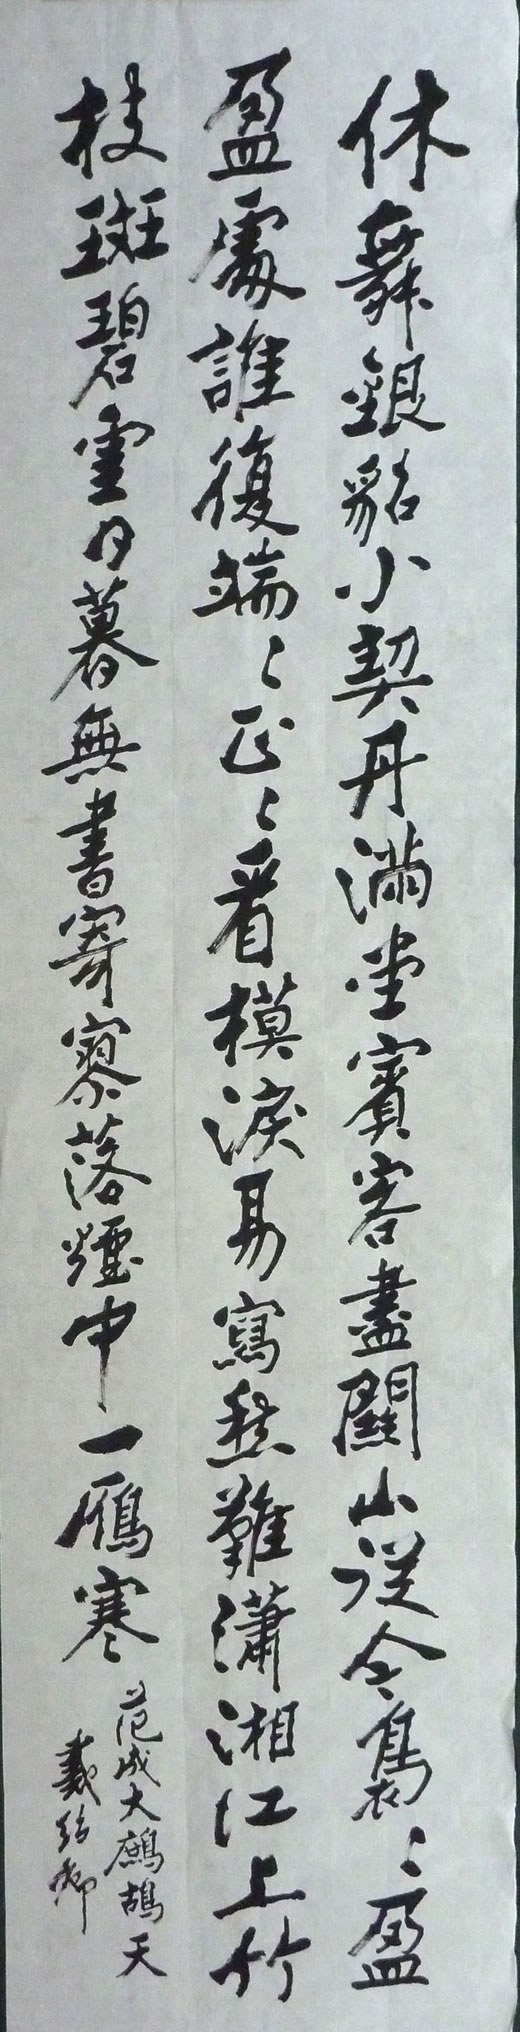 休舞銀貂小契丹滿堂賓客盡關山從今裊〻盈
盈處誰復端〻正〻看模淚易寫愁難瀟湘江上竹
枝斑碧雲日暮無書寄寥落煙中一鴈寒
范成大鷓鴣天
戴